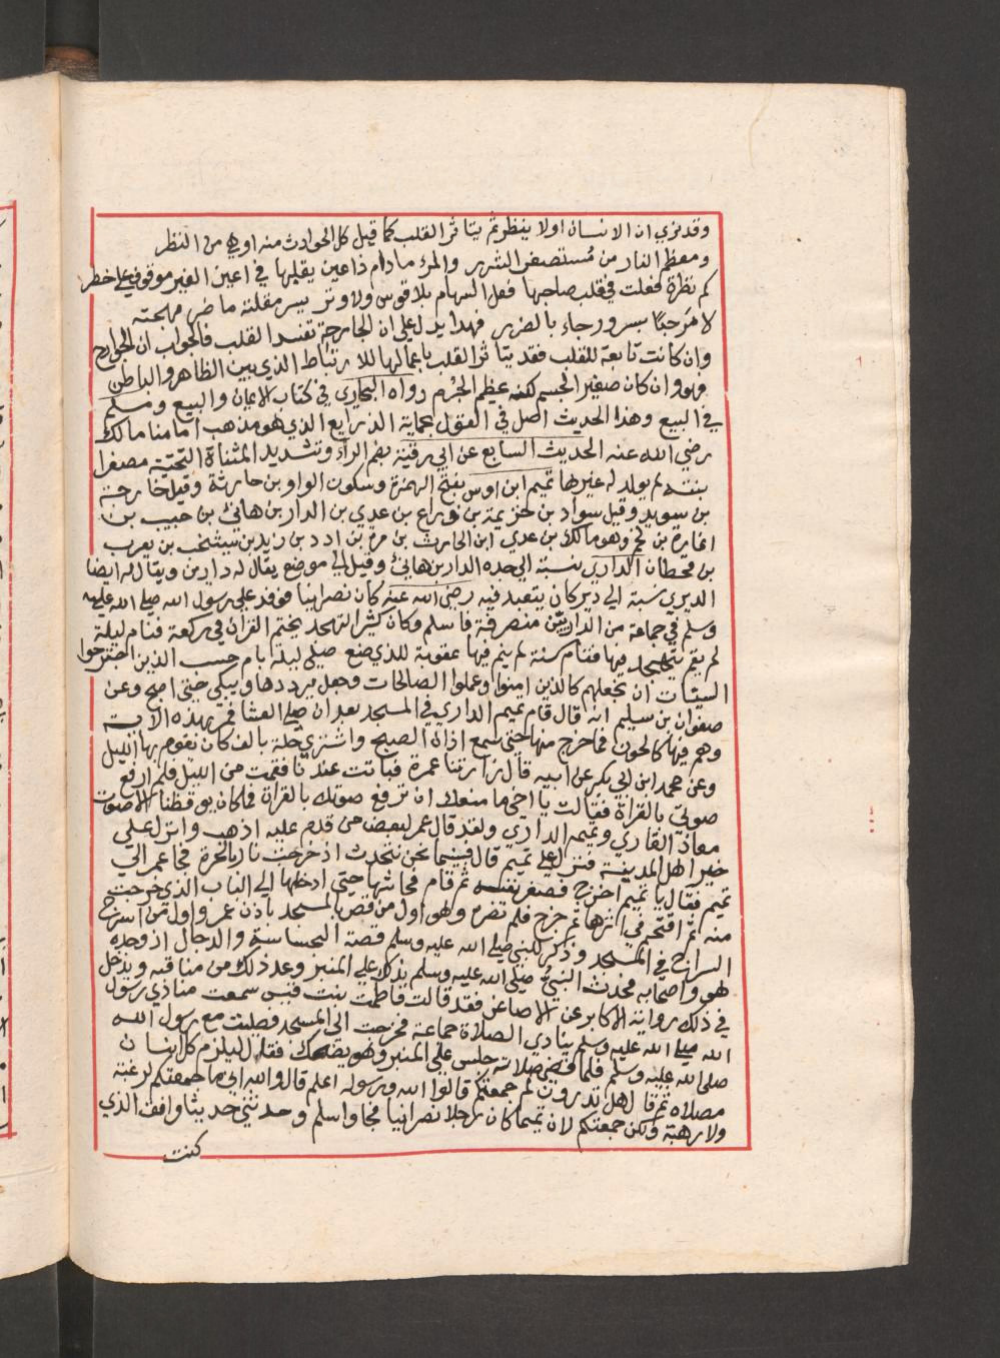 وقد نري ان الانسان اولا ينظر ثم يتاثر القلب كما قيل كل الحوادث منه اوهي من النظر
ومعظم النار من مستصغر الشرر والمرء مادام ذا عين يقلبها في اعين الغير موقوف علي خطر
كم نظرة فعلت في قلب صاحبها فعل السهام بلا قوس ولا وتر يسر مقلته ما ضر مهجته
لا مرحبا بسرور جاء بالضرر فهدا يدل علي ان الجارحة تفسد القلب فالجواب ان الجوارح
وان كانت تابعة للقلب فقد يتاثر القلب باعمالها للارتباط الذي بين الظاهر والباطن
وهو وان كان صغير الجسم لكنه عظيم الجرم رواه البخاري في كتاب الايمان والبيع ومسلم
في البيع وهذا الحديث اصل في القول بحماية الذرايع الذي هو مذهب امامنا مالك
رضي الله عنه الحديث السابع عن ابي رقية بضم الراء وتشديد المثناة التحتية مصغرا
بنته لم يولد له غيرها تميم ابن اوس بفتح الهمزة وسكون الواو بن حارثة وقيل خارجة
بن سويد وقيل سواد بن خزيمة بن ذراع بن عدي بن الدار بن هانئ بن حبيب بن
انمارة بن لخم وهو مالك بن عدي ابن الحارث بن مرة بن ادد بن زيد بن يشخب بن يعرب
بن قحطان الداري نسبة الي جده الدار بن هانئ وقيل الي موضع يقال له دارين ويقال له ايضا
الديري نسبة الي دير كان يتعبد فيه رضي الله عنه كان نصرانيا فوفد علي رسول الله صلي الله عليه
وسلم في جماعة من الداريين منصرفه فاسلم وكان كثير التهجد يختم القران في ركعة فنام ليلة
لم يقم يتهجد فيها فقام سنة لم ينم فيها عقوبة للذي صنع صلي ليلة بام حسب الذين اجترحوا
السيئات ان نجعلهم كالذين امنوا وعملوا الصالحات وجعل يرددها ويبكي حتي اصبح وعن
صفوان بن سليم انه قال قام تميم الداري في المسجد بعد ان صلي العشا فمر بهذه الاية
وهم فيها كالحون فما خرج منها حتي سمع اذان الصبح واشتري حلة بالف كان يقوم بها الليل
وعن محمد ابن ابي بكر عن ابيه قال زارتنا عمرة فباتت عندنا فقمت من الليل فلم ارفع
صوتي بالقراة فقالت يا اخي ما منعك ان ترفع صوتك بالقراة فما كان يوقظنا الا صوت
معاذ القاري وتميم الداري ولقد قال عمر لبعض من قدم عليه اذهب وانزل علي
خير اهل المدينة فنزل علي تميم قال فبينما نحن نتحدث اذ خرجت نار بالحرة فجا عمر الي
تميم فقال يا تميم اخرج فصغر نفسه ثم قام فحاشها حتي ادخلها الي الباب الذي خرجت
منه ثم اقتحم في اثرها ثم خرج فلم تضره وهو اول من قص بالمسجد باذن عمر واول من اسرج
السراج في المسجد وذكر للنبي صلي الله عليه وسلم قصة الجساسة والدجال اذ وجده
هو واصحابه فحدث النبي صلي الله عليه وسلم بذلك علي المنبر وعد ذلك من مناقبه ويدخل
في ذلك رواية الاكابر عن الاصاغر فقد قالت فاطمة بنت قيس سمعت منادي رسول
الله صلي الله عليه وسلم ينادي الصلاة جماعة فخرجت الي المسجد فصليت مع رسول الله
صلي الله عليه وسلم فلما قضي صلاته جلس علي المنبر وهو يضحك فقال ليلزم كل انسان
مصلاه ثم قال هل تدرون لم جمعتكم قالوا الله ورسوله اعلم قال والله اني ما جمعتكم لرغبة
ولا رهبة ولكن جمعتكم لان تميما كان رجلا نصرانيا فجا واسلم وحدثني حديثا وافق الذي
كنت